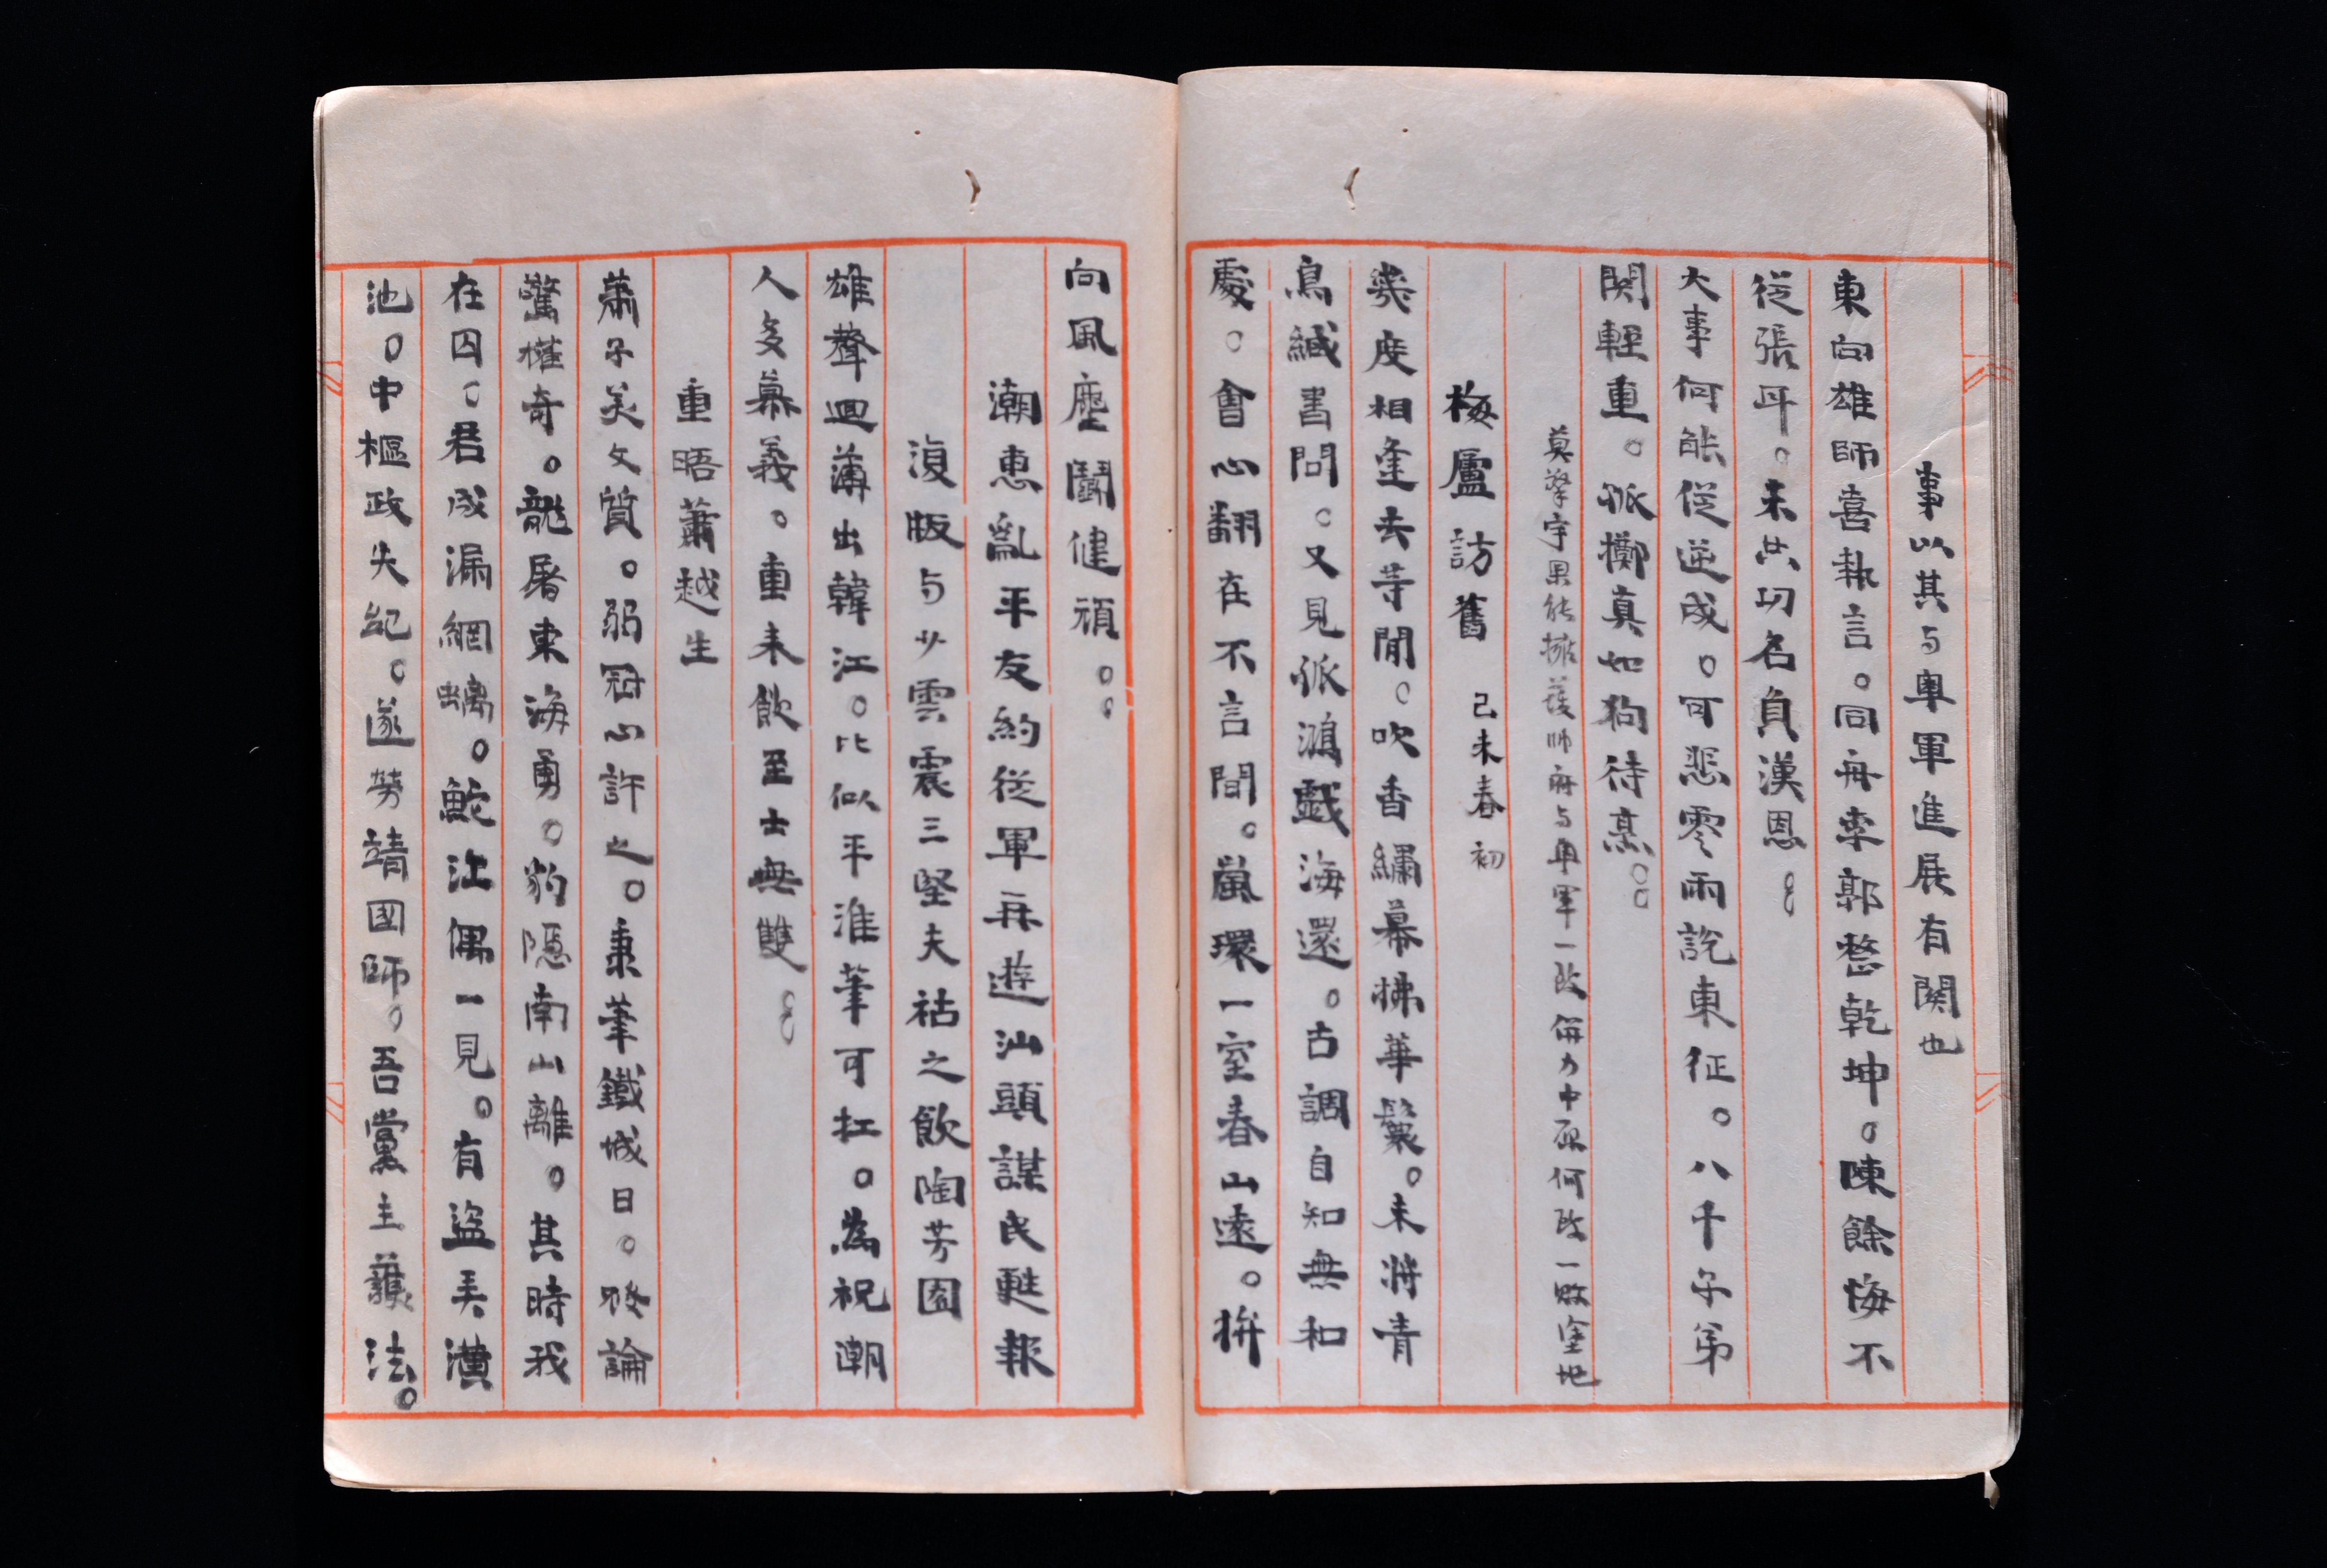 事以其与粤軍進展有関也
東向雄師喜執言。同舟李郭整乾坤。陳餘悔不
從張耳。未共功名負漢恩。
大事何能從逆成。可悲零雨說東征。八千子弟
関輕重。孤擲真如狗待烹。
莫擎宇果能擁護帥府与粤軍一致併力中原何致一敗塗地
梅廬訪舊 己未春初
幾度相逢去等閒。吹香繡幕拂華鬘。未將青
鳥緘書問。又見孤鴻戲海還。古調自知無和
處。會心翻在不言間。嵐環一室春山遠。拚
向風塵鬭健頑。
潮惠亂平友約從軍再遊汕頭謀民甦報
復版与少雲震三堅夫祜之飲陶芳園
雄聲迴薄出韓江。比似平淮筆可扛。為祝潮
人多慕義。重來飲至士無雙。
重晤蕭越生
蕭子美文質。弱冠心許之。秉筆鐵城日。談論
驚權奇。龍屠東海勇。豹隱南山離。其時我
在囚。君成漏網螭。鮀江偶一見。有盜弄潢
池。中樞政失紀。遂勞靖國師。吾黨主護法。